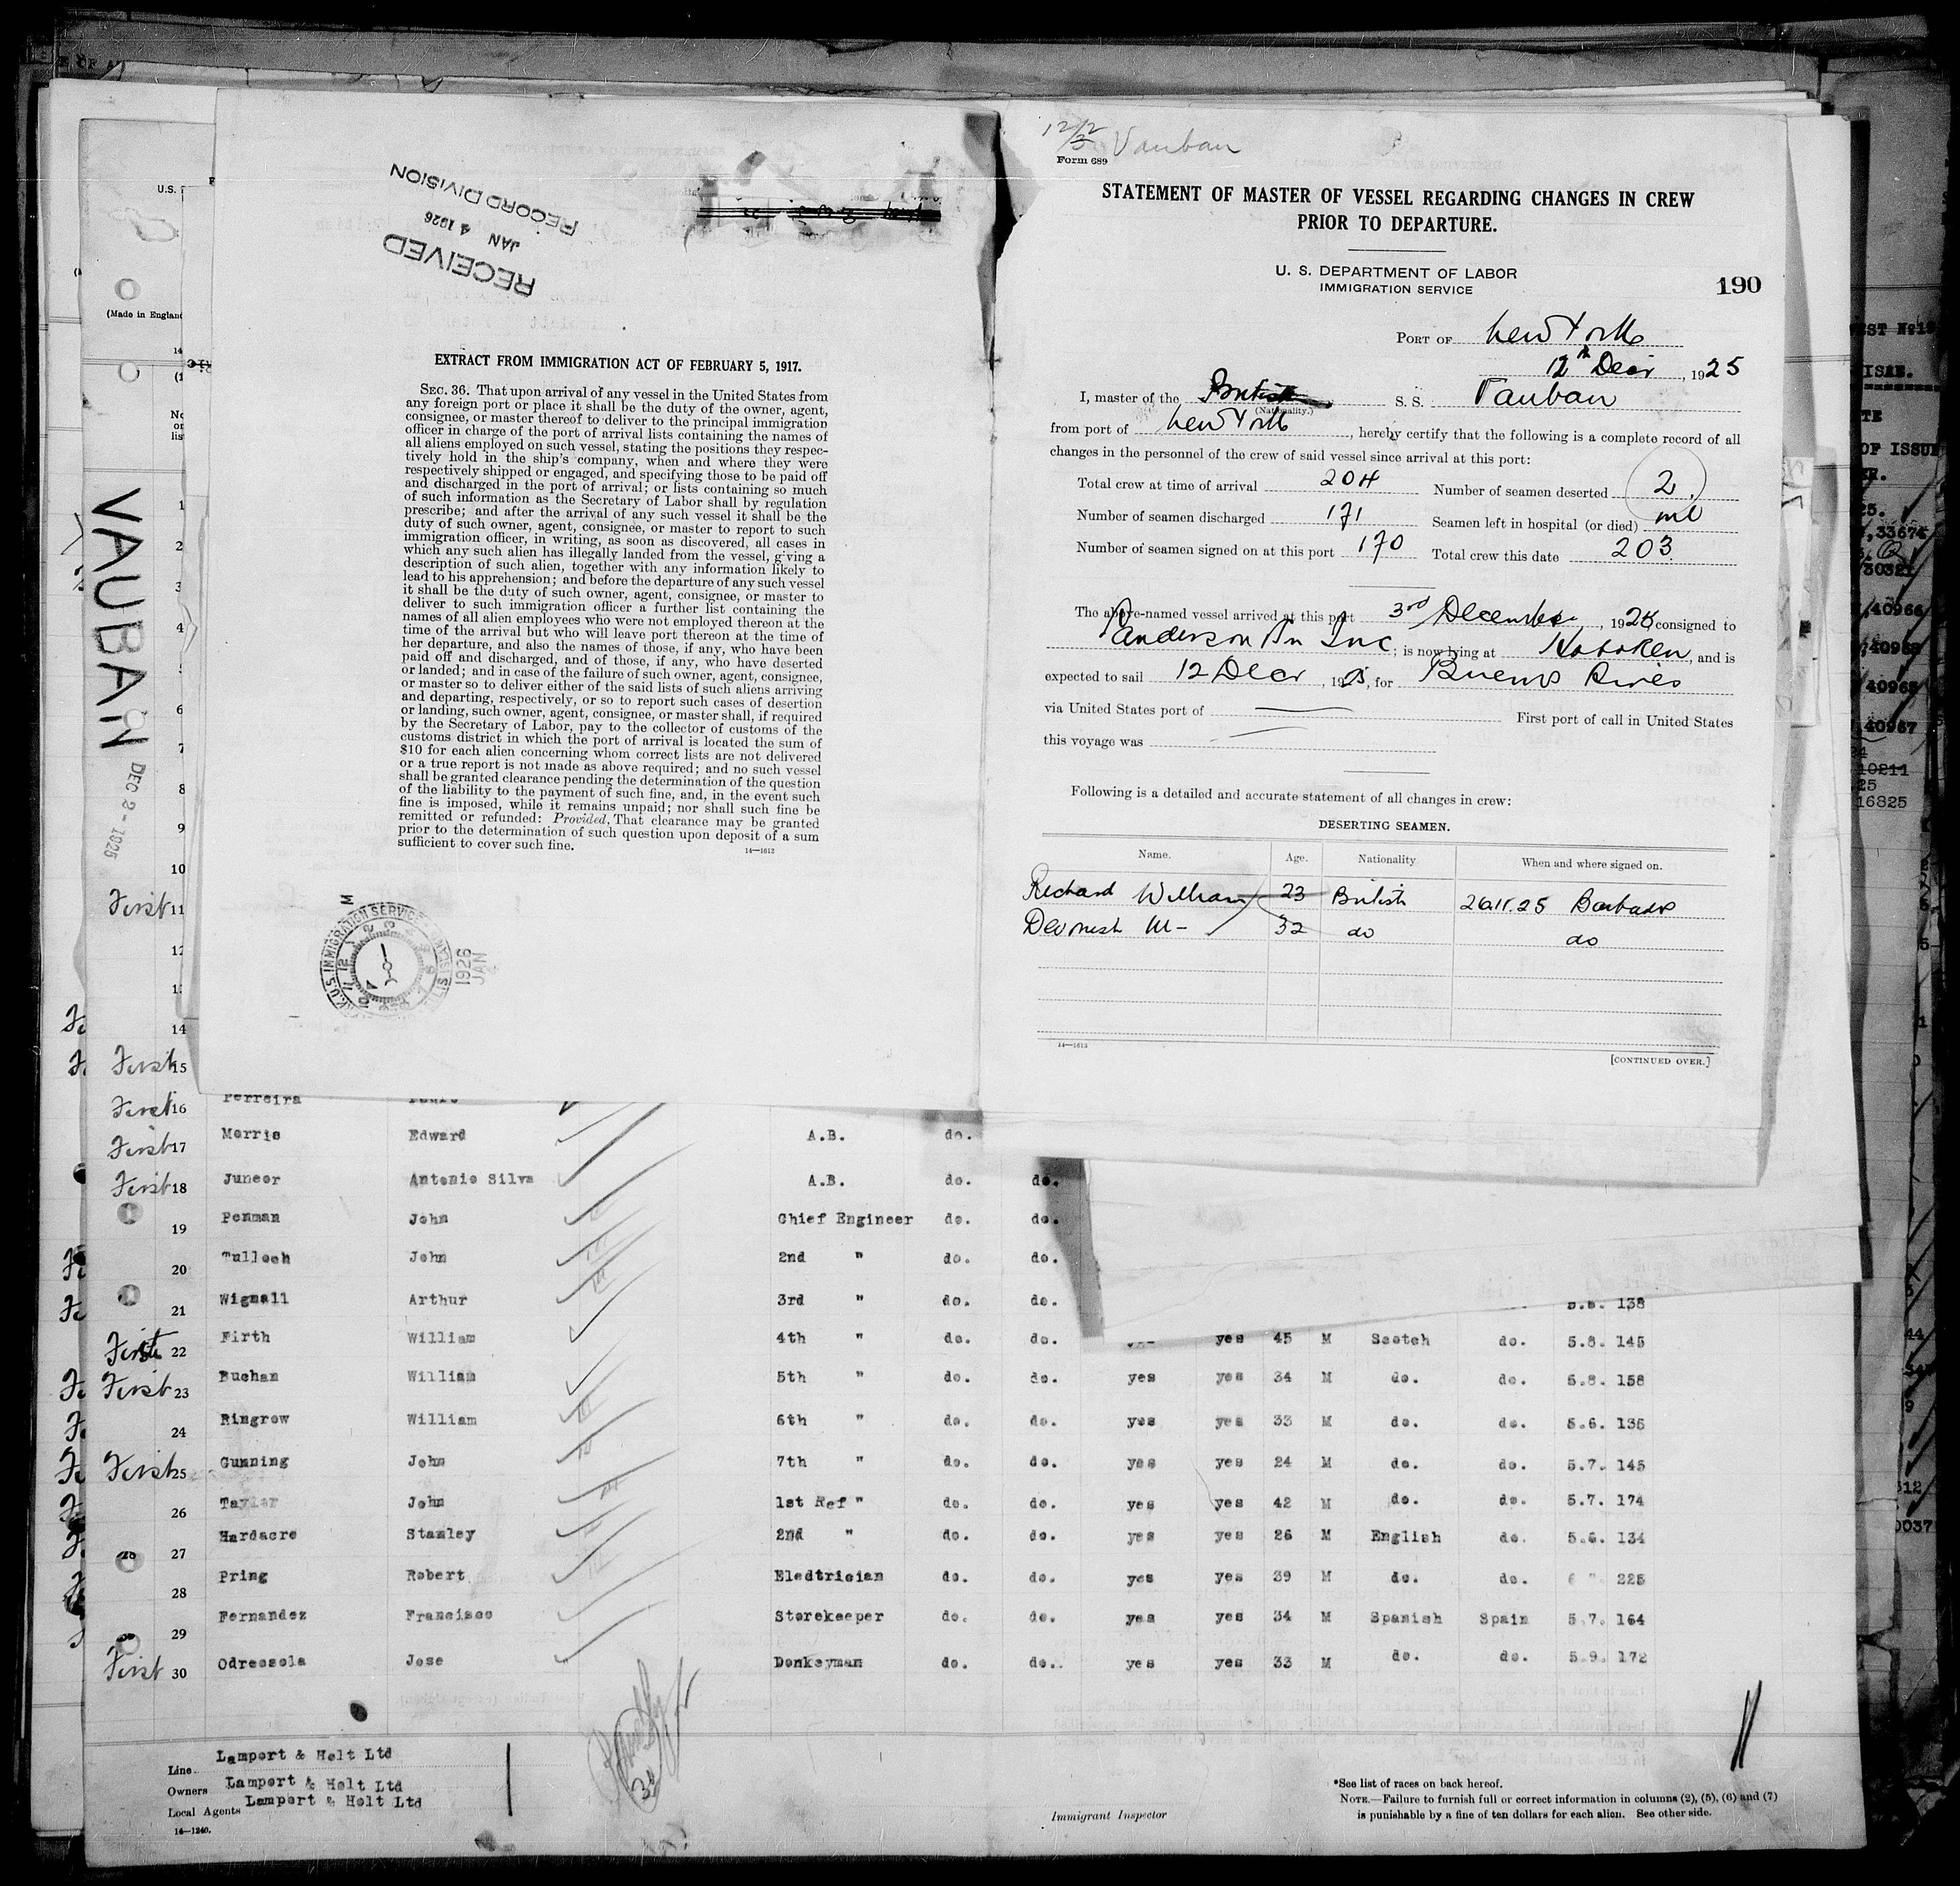 RECORD DIVISION
JAN 4 1926
RECEIVED
EXTRACT FROM IMMIGRATION ACT OF FEBRUARY 5, 1917.
SEC. 36. That upon arrival of any vessel in the United States from
any foreign port or place it shall be the duty of the owner, agent,
consignee, or master thereof to deliver to the principal immigration
officer in charge of the port of arrival lists containing the names of
all aliens employed on such vessel, stating the positions they respec-
tively hold in the ship's company, when and where they were
respectively shipped or engaged, and specifying those to be paid off
and discharged in the port of arrival; or lists containing so much
of such information as the Secretary of Labor shall by regulation
prescribe; and after the arrival of any such vessel it shall be the
duty of such owner, agent, consignee, or master to report to such
immigration officer, in writing, as soon as discovered, all cases in
which any such alien has illegally landed from the vessel, giving a
description of such alien, together with any information likely to
lead to his apprehension; and before the departure of any such vessel
it shall be the duty of such owner, agent, consignee, or master to
deliver to such immigration officer a further list containing the
names of all alien employees who were not employed thereon at the
time of the arrival but who will leave port thereon at the time of
her departure, and also the names of those, if any, who have been
paid off and discharged, and of those, if any, who have deserted
or landed; and in case of the failure of such owner, agent, consignee,
or master so to deliver either of the said lists of such aliens arriving
and departing, respectively, or so to report such cases of desertion
or landing, such owner, agent, consignee, or master shall, if required
by the Secretary of Labor, pay to the collector of customs of the
customs district in which the port of arrival is located the sum of
$10 for each alien concerning whom correct lists are not delivered
or a true report is not made as above required; and no such vessel
shall be granted clearance pending the determination of the question
of the liability to the payment of such fine, and, in the event such
fine is imposed, while it remains unpaid; nor shall such fine be
remitted or refunded: Provided, That clearance may be granted
prior to the determination of such question upon deposit of a sum
sufficient to cover such fine.
14—1613
U.S. IMMIGRATION SERVICE
1926
JAN
VAUBAN
DEC 2 - 1925
(Made in England
12/3 Vauban
Form 689
STATEMENT OF MASTER OF VESSEL REGARDING CHANGES IN CREW
PRIOR TO DEPARTURE.
U. S. DEPARTMENT OF LABOR
IMMIGRATION SERVICE
190
PORT OF New York
12th Decr, 1925
I, master of the British S. S. Vauban
(Nationality.)
from port of New York, hereby certify that the following is a complete record of all
changes in the personnel of the crew of said vessel since arrival at this port:
Total crew at time of arrival 204 Number of seamen deserted 2.
Number of seamen discharged 171 Seamen left in hospital (or died) nil
Number of seamen signed on at this port 170 Total crew this date 203
The above-named vessel arrived at this port 3rd December, 1925 consigned to
Sanderson Sn Inc; is now lying at Hoboken, and is
expected to sail 12 Decr, 1925, for Buenos Aires
via United States port of First port of call in United States
this voyage was
Following is a detailed and accurate statement of all changes in crew:
DESERTING SEAMEN.
Name. Age. Nationality When and where signed on.
Richard William 23 British 26.11.25 Barbados
Devonish M- 32 do do
14—1613
[CONTINUED OVER.]
First 11
12
14
First 15
First 16 Perreira
First 17 Morris Edward A.B. do.
First 18 Juneor Antonio Silva A.B. do. do.
19 Penman John Chief Engineer do. do.
20 Tulloch John 2nd " do. do.
21 Wignall Arthur 3rd " do. do. 138
First 22 Firth William 4th " do. do. yes 45 M Scotch do. 5.8. 145
First 23 Buchan William 5th " do. do. yes yes 34 M do. do. 5.8. 158
24 Ringrow William 6th " do. do. yes yes 33 M do. do. 5.6. 135
First 25 Gunning John 7th " do. do. yes yes 24 M do. do. 5.7. 145
26 Taylor John 1st Ref " do. do. yes yes 42 M do. do. 5.7. 174
27 Hardacre Stanley 2nd " do. do. yes yes 26 M English do. 5.6. 134
28 Pring Robert Eledtrician do. do. yes yes 39 M do. do. 225
29 Fernandez Francisco Storekeeper do. do. yes yes 34 M Spanish Spain 5.7. 164
First 30 Odreozola Jose Donkeyman do. do. yes yes 33 M do. do. 5.9. 172
Line Lamport & Holt Ltd
Owners Lamport & Holt Ltd
Local Agents Lamport & Holt Ltd
14—1240.
Immigrant Inspector
*See list of races on back hereof.
NOTE.—Failure to furnish full or correct information in columns (2), (5), (6) and (7)
is punishable by a fine of ten dollars for each alien. See other side.